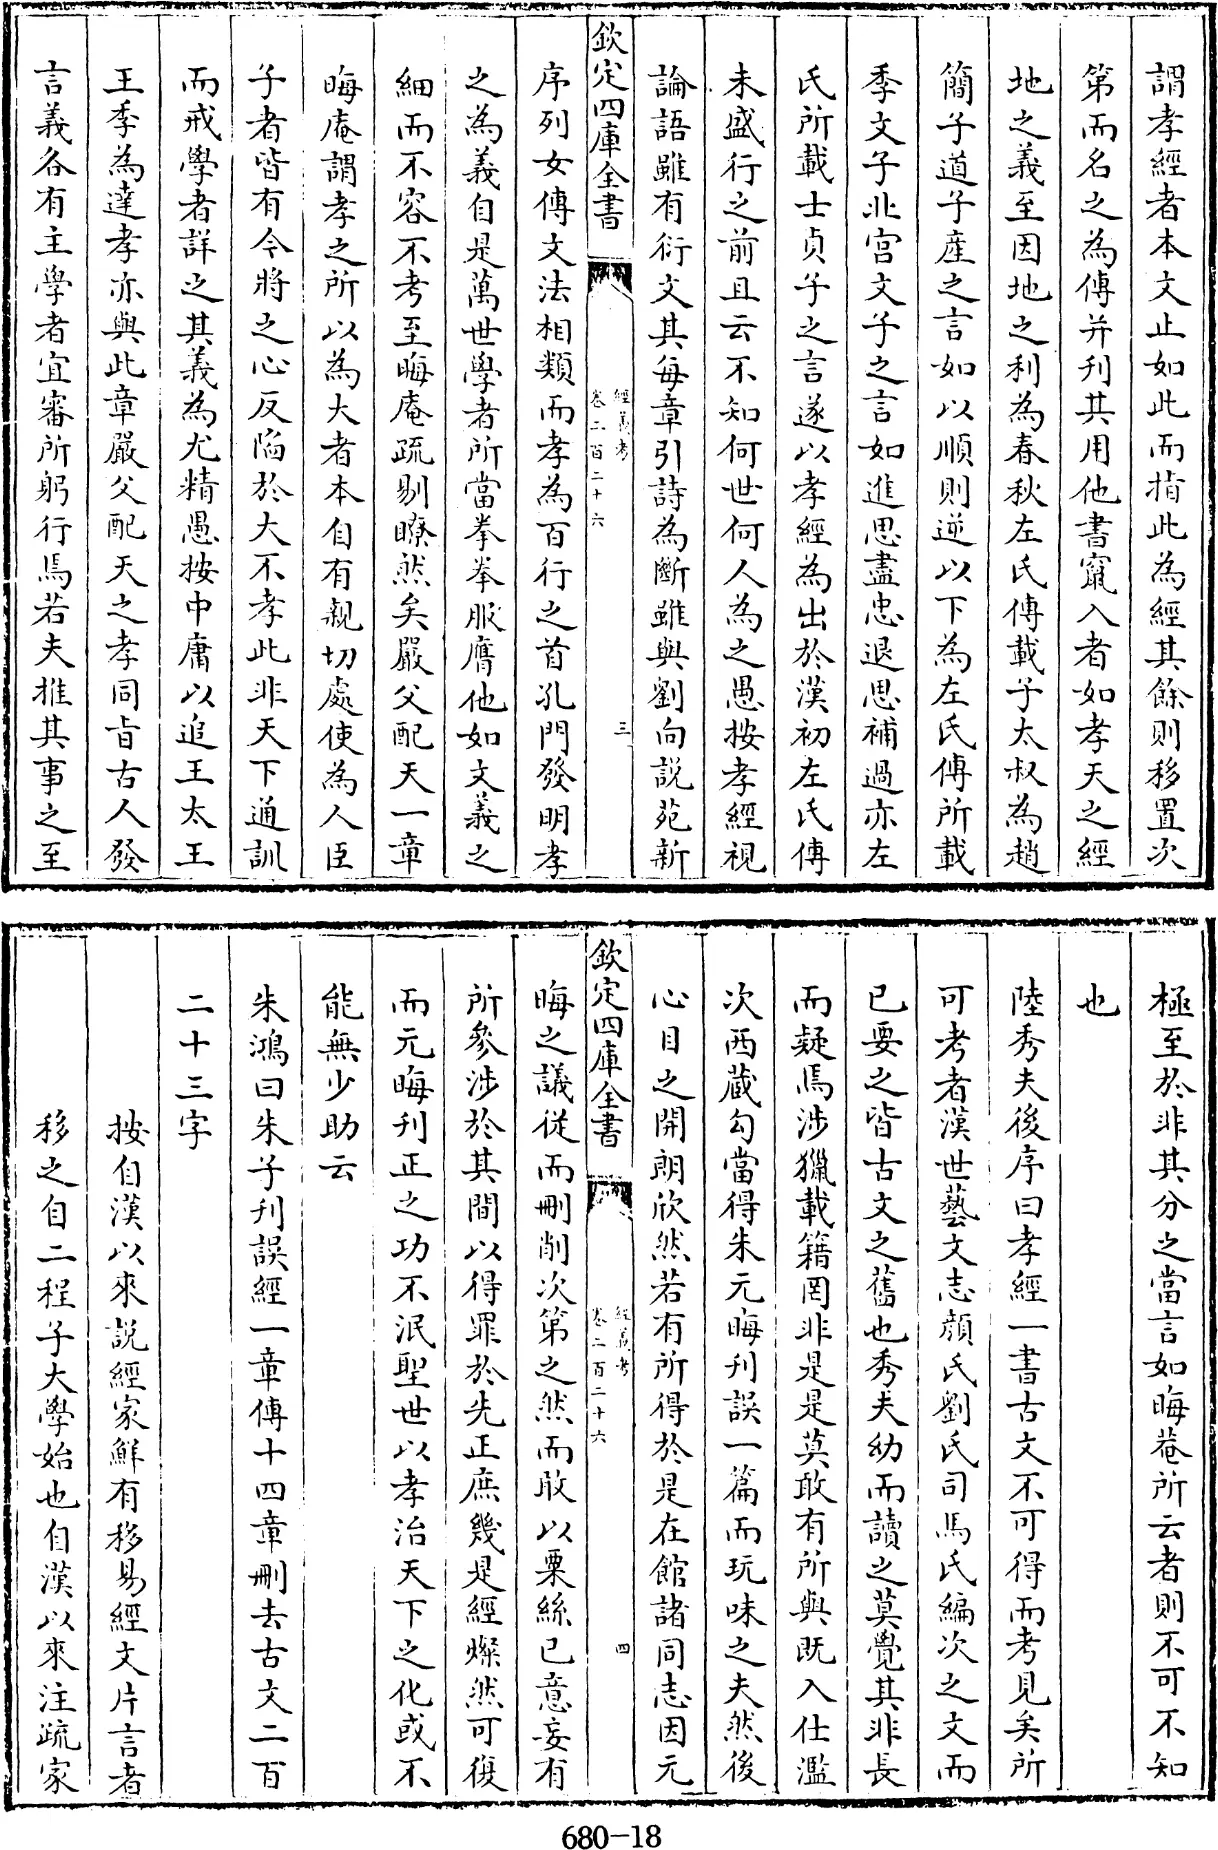 謂孝經者本文止如此而指此為經其餘則移置次
第而名之為傳并刋其用他書竄入者如孝天之經
地之義至因地之利為春秋左氏傳載子太叔為趙
簡子道子產之言如以順則逆以下為左氏傳所載
季文子北宫文子之言如進思盡忠退思補過亦左
氏所載士貞子之言遂以孝經為出於漢初左氏傳
未盛行之前且云不知何世何人為之愚按孝經視
論語雖有衍文其每章引詩為斷雖與劉向説苑新
欽定四庫全書
經義考
卷二百二十六
三
序列女傳文法相類而孝為百行之首孔門發明孝
之為義自是萬世學者所當拳拳服膺他如文義之
細而不容不考至晦庵疏剔瞭然矣嚴父配天一章
晦庵謂孝之所以為大者本自有親切處使為人臣
子者皆有今將之心反陷於大不孝此非天下通訓
而戒學者詳之其義為尤精愚按中庸以追王太王
王季為達孝亦與此章嚴父配天之孝同旨古人發
言義各有主學者宜審所躬行焉若夫推其事之至
極至於非其分之當言如晦菴所云者則不可不知
也
陸秀夫後序曰孝經一書古文不可得而考見矣所
可考者漢世藝文志顔氏劉氏司馬氏編次之文而
已要之皆古文之舊也秀夫幼而讀之莫覺其非長
而疑焉涉獵載籍罔非是是莫敢有所與既入仕濫
次西蔵勾當得朱元晦刋誤一篇而玩味之夫然後
心目之開朗欣然若有所得於是在館諸同志因元
欽定四庫全書
經義考
卷二百二十六
四
晦之議從而刪削次第之然而敢以栗絲已意妄有
所參涉於其間以得罪於先正庶幾是經燦然可復
而元晦刋正之功不泯聖世以孝治天下之化或不
能無少助云
朱鴻曰朱子刋誤經一章傳十四章刪去古文二百
二十三字
按自漢以來説經家鮮有移易經文片言者
移之自二程子大學始也自漢以來注疏家
680-18